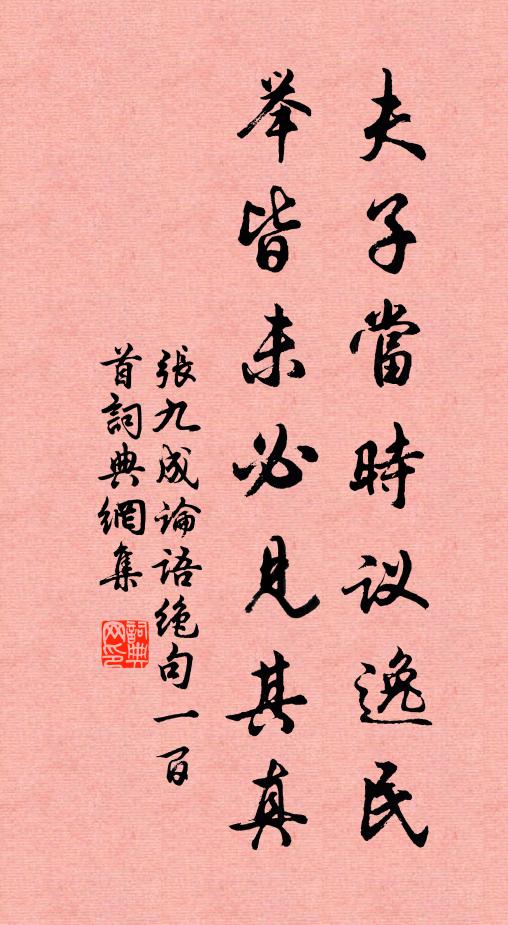 夫子當時议逸民
举皆未必見其真
張九成論語绝句一百
首詞典網集
詞典网印